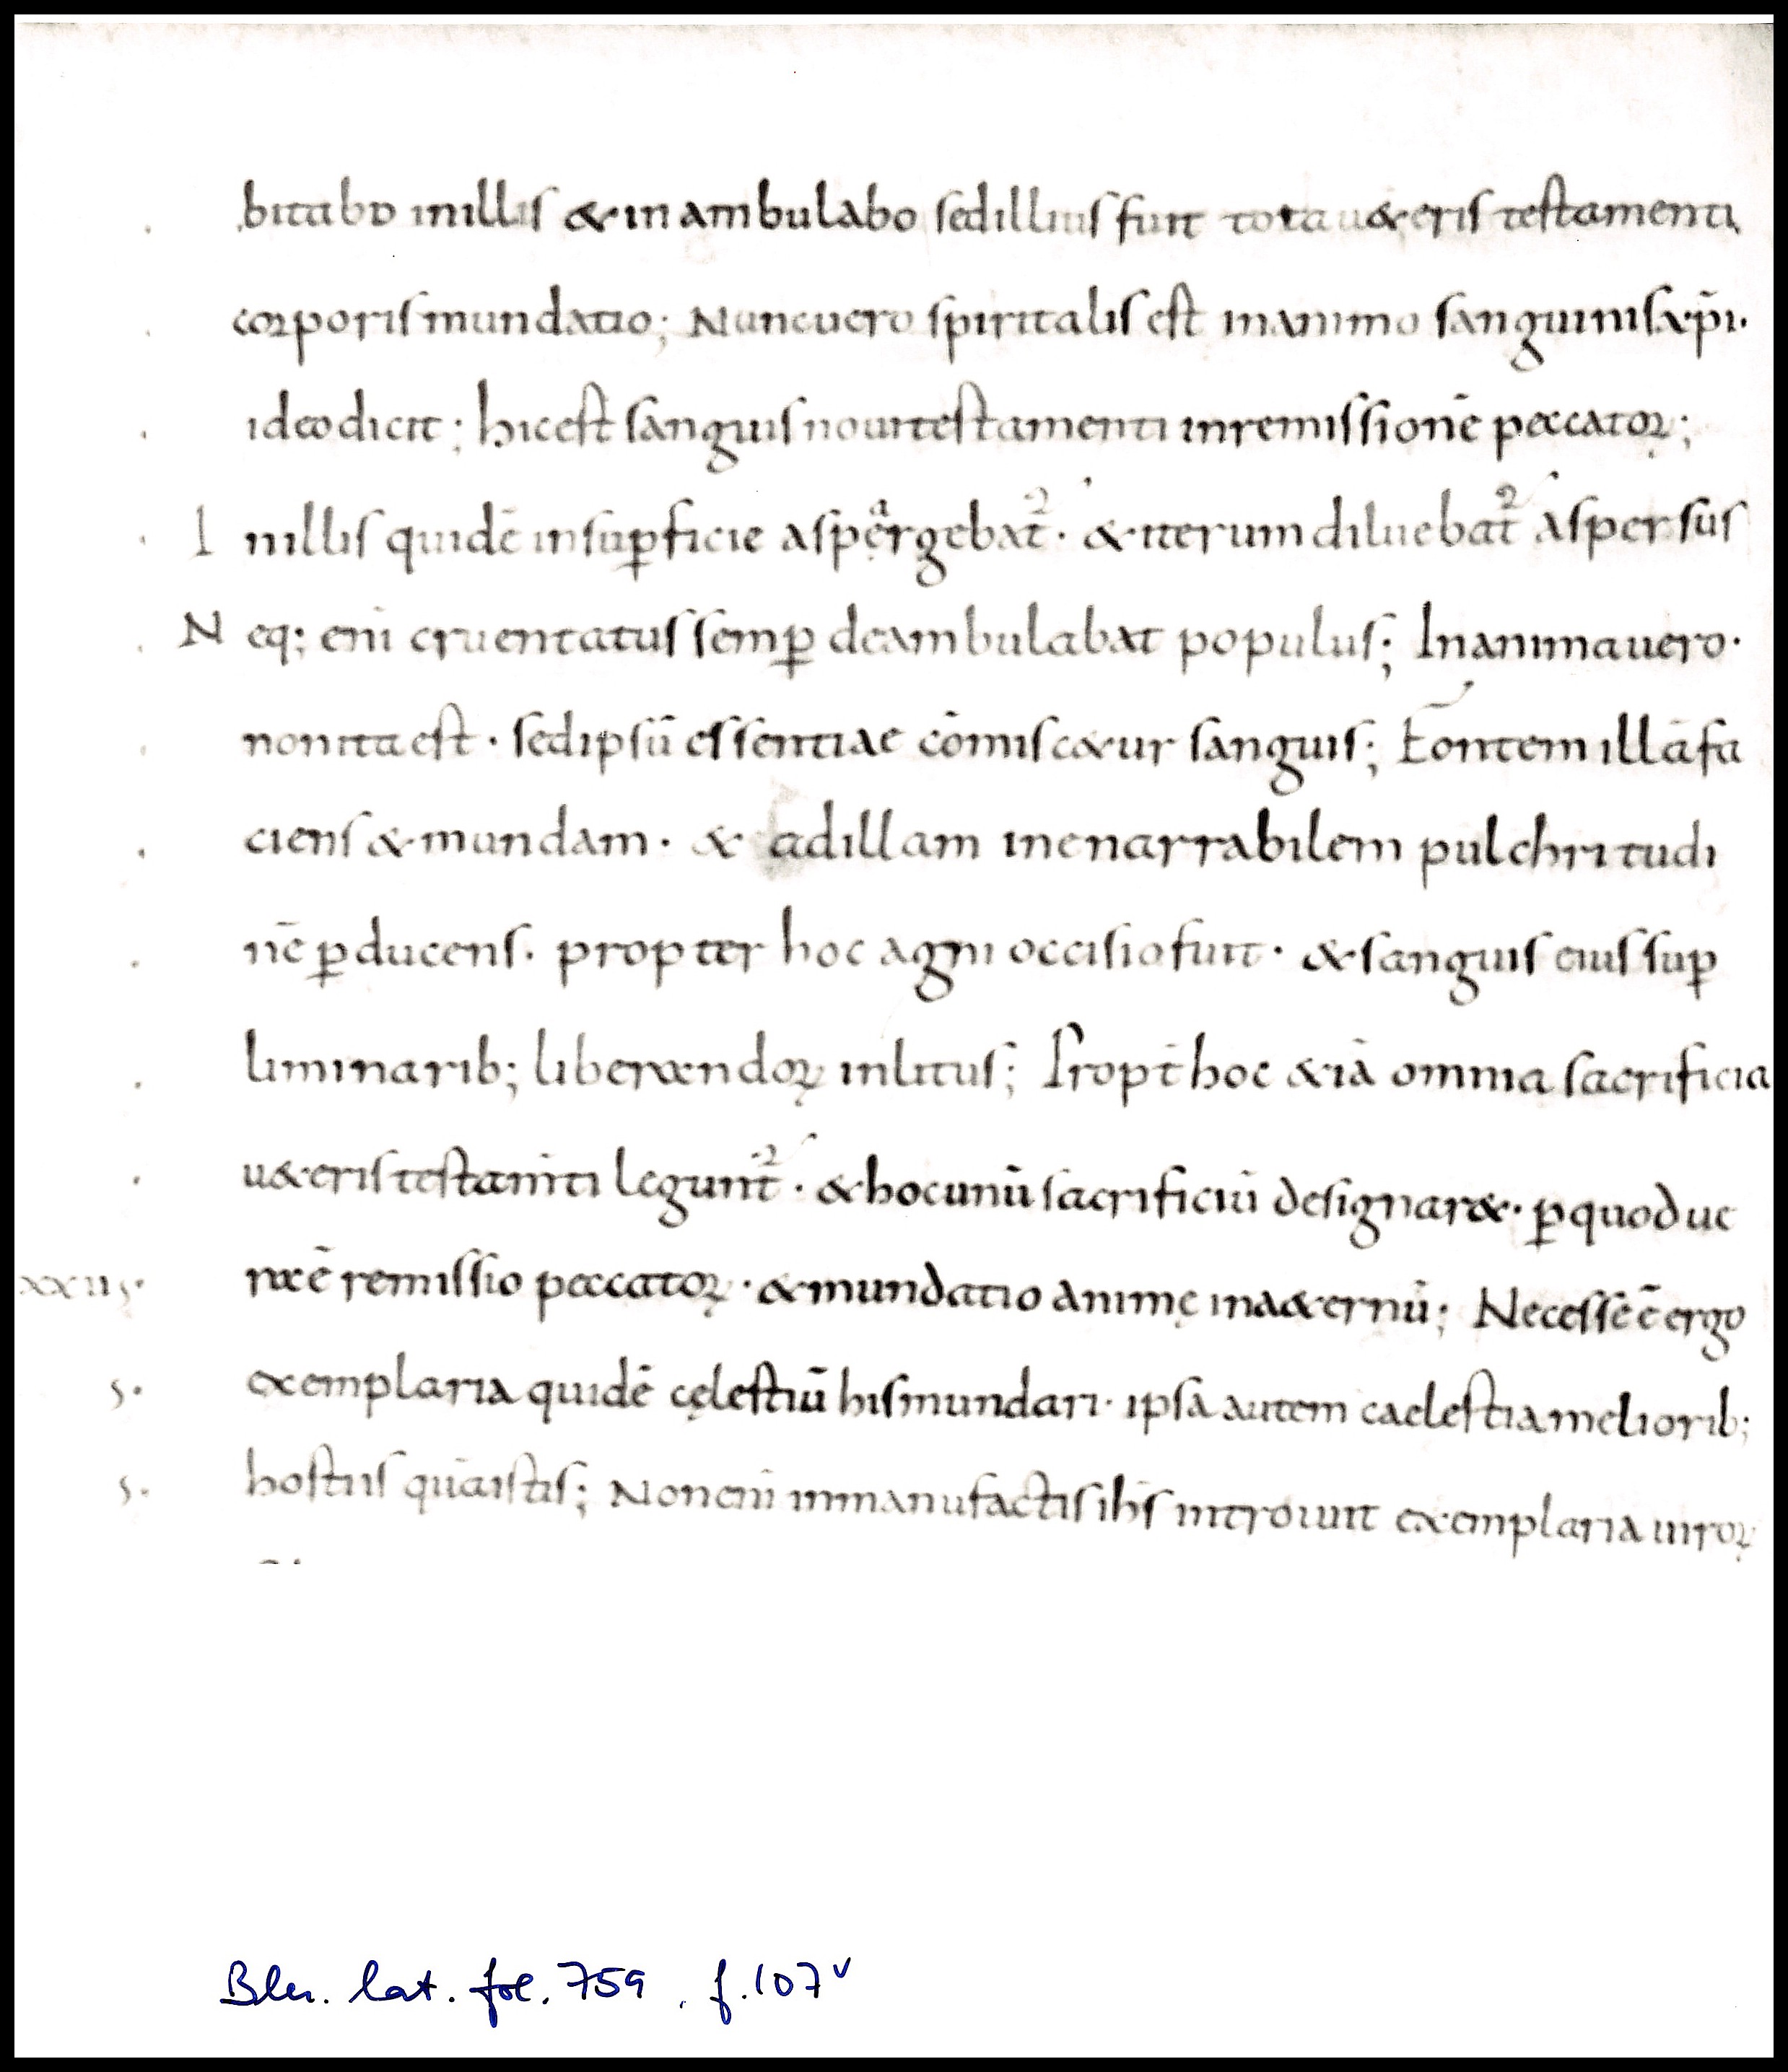 bitabo inillis & in ambulabo sedillius fuit tota u&eris testamenti
corporis mundatio; Nuncuero spiritalis est inanimo sanguinis xp̄i·
ideodicit; hicest sanguis nouitestamenti inremissionē peccatoꝝ;
I nillis quidē insuꝑficie aspergebat̄· & iterum diluebat̄ aspersus
N eq; eni cruentatus semꝑ deambulabat populus; Inanimauero·
nonitaest· sedipsū essentiae cōmisc&ur sanguis; Fontem illāfa
ciens & mundam· & adillam inenarrabilem pulchritudi
nē ꝑducens· propter hoc agni occisiofuit· & sanguis eius suꝑ
liminarib; liberandoꝝ inlitus; Propt̄ hoc &iā omnia sacrificia
u&eris testam̄ti legunt̄· & hocunū sacrificiū designar&· ꝑquod ue
xxiis· ra ē remissio peccatoꝝ· & mundatio animę ina&ernū; Necessē ē ergo
s· exemplaria quidē cęlestiū hismundari· ipsa autem caelestiameliorib;
s· hostiis quāistis; Noneni inmanufactis ih̄s introiuit exemplaria uiroꝝ
Bln. lat. fol. 759, f. 107v